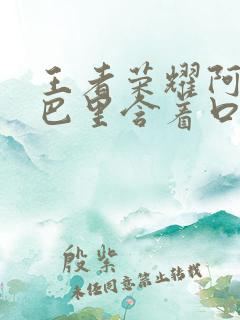 王者荣耀阿
巴里含着口
殷柴
未经同意禁止转载